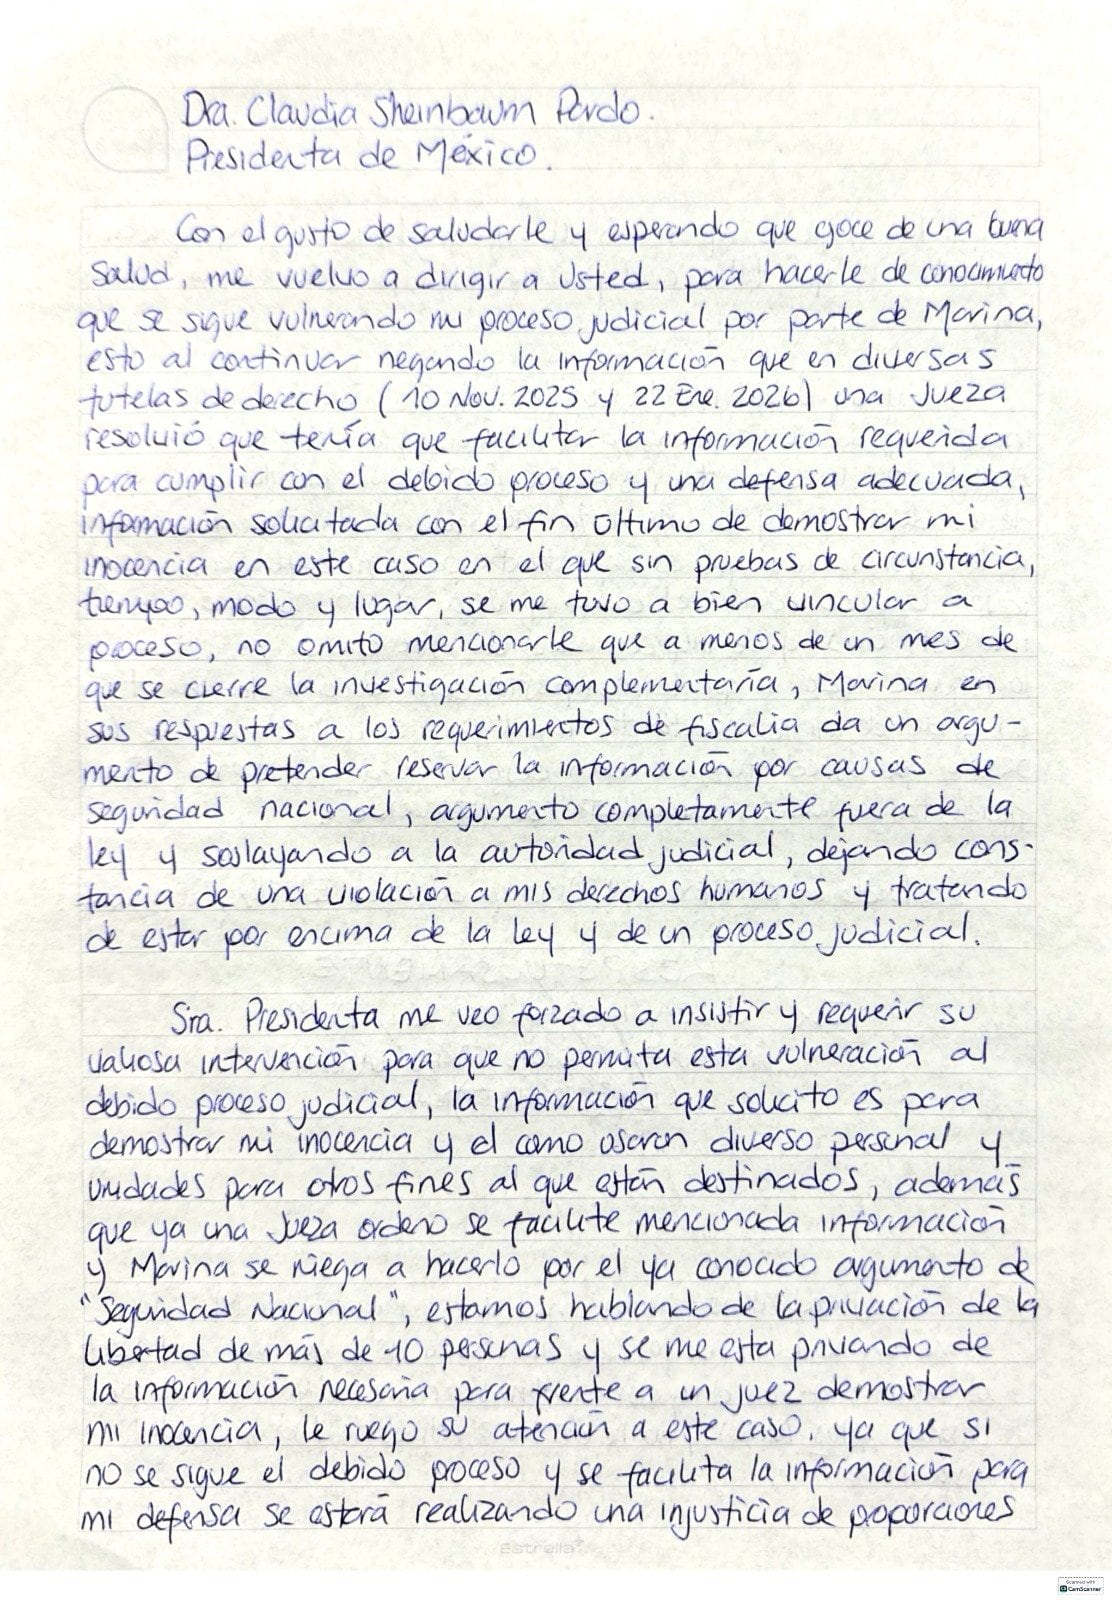 Dra. Claudia Sheinbaum Pardo.
Presidenta de México.
Con el gusto de saludarle y esperando que goce de una buena
salud, me vuelvo a dirigir a Usted, para hacerle de conocimiento
que se sigue vulnerando mi proceso judicial por parte de Marina,
esto al continuar negando la información que en diversas
tutelas de derecho (10 Nov. 2025 y 22 Ene. 2026) una Jueza
resolvió que tenía que facilitar la información requerida
para cumplir con el debido proceso y una defensa adecuada,
información solicitada con el fin último de demostrar mi
inocencia en este caso en el que sin pruebas de circunstancia,
tiempo, modo y lugar, se me tuvo a bien vincular a
proceso, no omito mencionarle que a menos de un mes de
que se cierre la investigación complementaría, Marina en
sus respuestas a los requerimientos de fiscalia da un argu-
mento de pretender reservar la información por causas de
seguridad nacional, argumento completamente fuera de la
ley y soslayando a la autoridad judicial, dejando cons-
tancia de una violación a mis derechos humanos y tratando
de estar por encima de la ley y de un proceso judicial.
Sra. Presidenta me veo forzado a insistir y requerir su
valiosa intervención para que no permita esta vulneración al
debido proceso judicial, la información que solicito es para
demostrar mi inocencia y el como usaron diverso personal y
unidades para otros fines al que están destinados, además
que ya una Jueza ordeno se facilite mencionada información
y Marina se niega a hacerlo por el ya conocido argumento de
"Seguridad Nacional", estamos hablando de la privación de la
libertad de más de 10 personas y se me esta privando de
la información necesaria para frente a un juez demostrar
mi inocencia, le ruego su atención a este caso, ya que si
no se sigue el debido proceso y se facilita la información para
mi defensa se estará realizando una injusticia de proporciones
Estrella
Scanned with
CamScanner